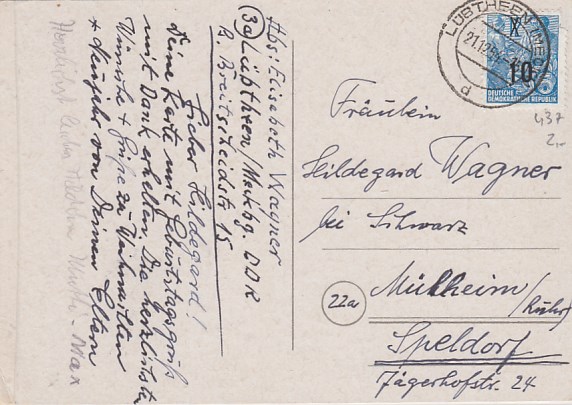 Abs: Elisabeth Wagner
(3a) Lübtheen/Meckbg. DDR
R. Breitscheidstr. 15
Lieber Hildegard!
Deine Karte mit Geburtstagsgruß
mit Dank erhalten. Die herzlichsten
Wünsche + Grüße zu Weihnachten
+ Neujahr von Deinen Eltern
LÜBTHEEN (MECKL)
21.12.54
d
X
10
DEUTSCHE
DEMOKRATISCHE REPUBLIK
437
2,-
Fräulein
Hildegard Wagner
bei Schwarz
22a
Mülheim/
Ruhr
Speldorf
Jägerhofstr. 24